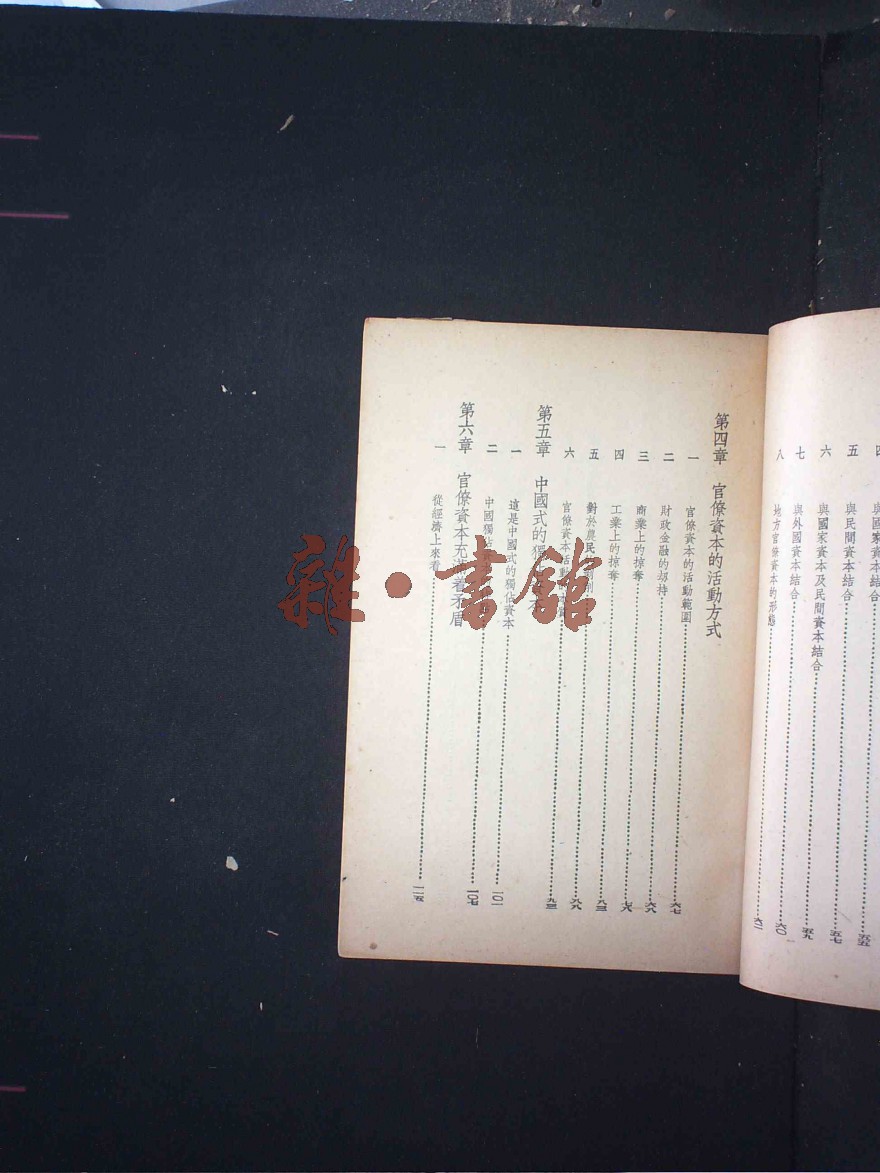 與國家資本結合 五五
五 與民間資本結合 五七
六 與國家資本及民間資本結合 五九
七 與外國資本結合 六〇
八 地方官僚資本的形態 六二
第四章 官僚資本的活動方式
一 官僚資本的活動範圍 六七
二 財政金融的刼持 六八
三 商業上的掠奪 七八
四 工業上的掠奪 八三
五 對於農民 削
六 官僚資本活動 九三
第五章 中國式的獨
一 這是中國式的獨佔資本 一〇一
二 中國獨佔 一〇七
第六章 官僚資本充滿着矛盾
一 從經濟上來看 一一五
雜·書館